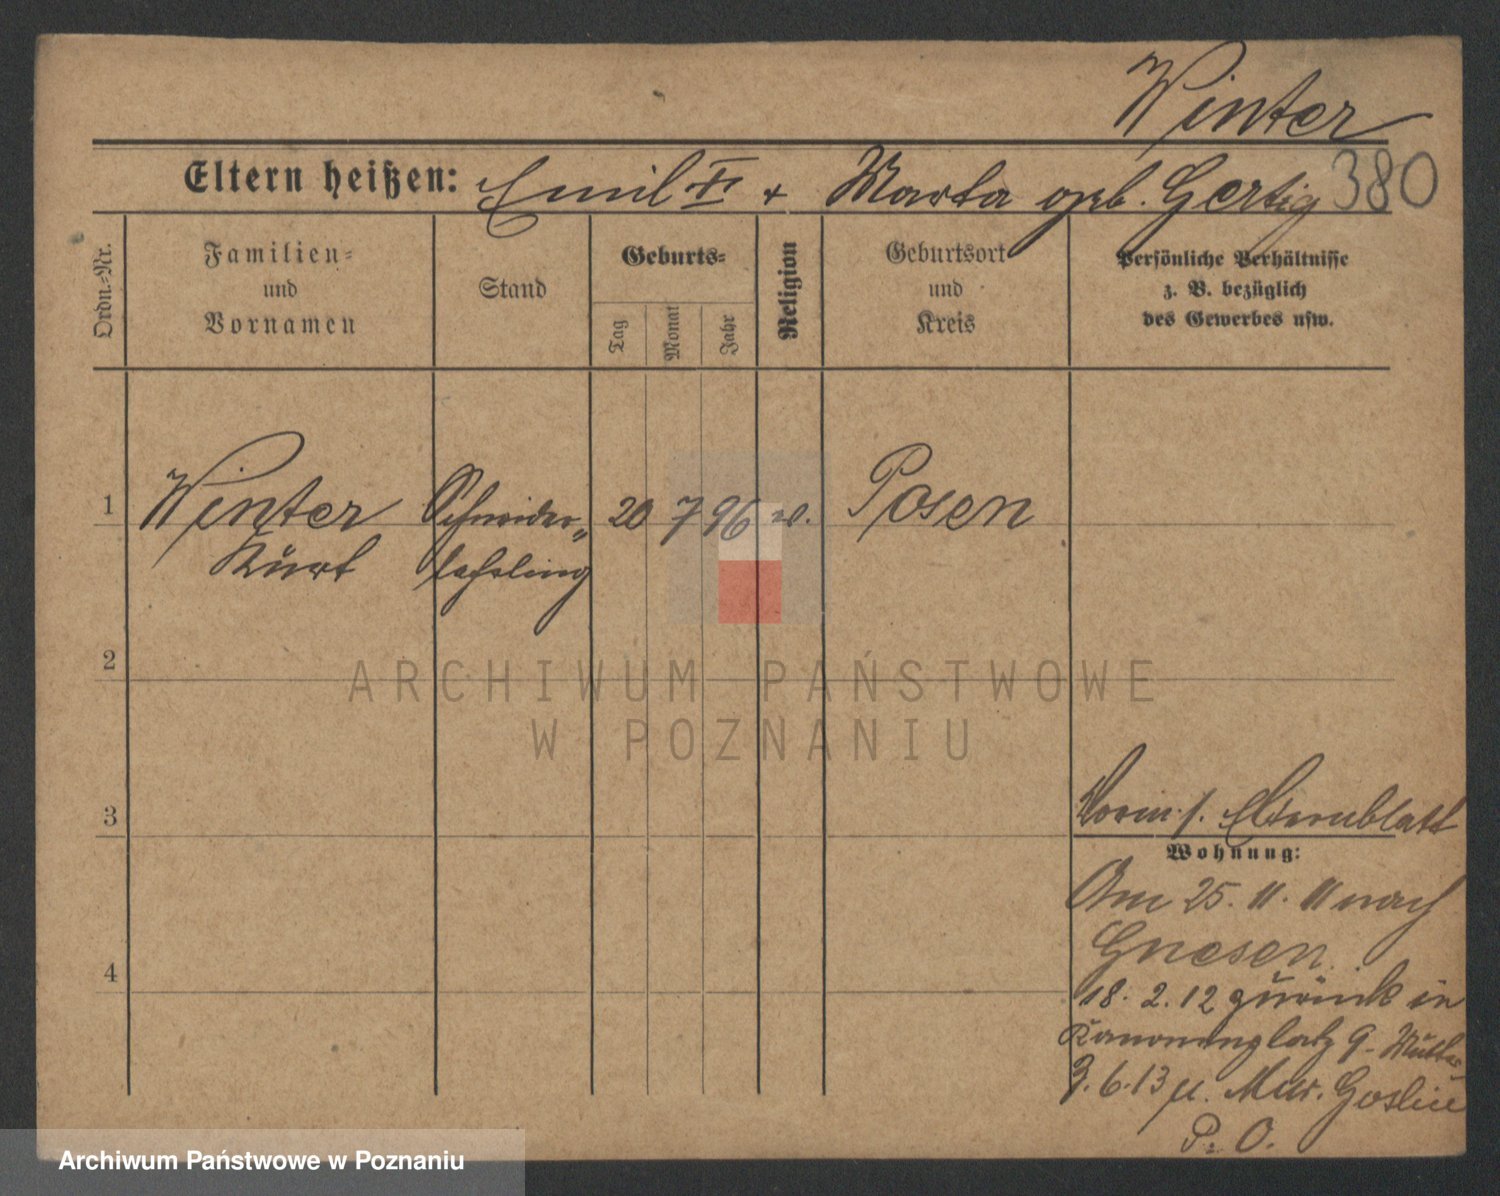 Winter
Eltern heißen: Emil II + Marta geb. Gertig 380
Ordn.-Nr.
Familien-
und
Vornamen
Stand
Geburts-
Tag
Monat
Jahr
Religion
Geburtsort
und
Kreis
Persönliche Verhältnisse
z. B. bezüglich
des Gewerbes usw.
1 Winter Schneider- 20 7 96 Posen
Kurt lehrling
2
3
4
Vorm. s. Elternblatt
Wohnung:
Am 25. 11. 11 nach
Gnesen.
18. 2. 12 zurück in
Kanonenplatz 9. Mutter
3. 6. 13 n. Mur. Goslin
P. O.
ARCHIWUM PAŃSTWOWE
W POZNANIU
Archiwum Państwowe w Poznaniu